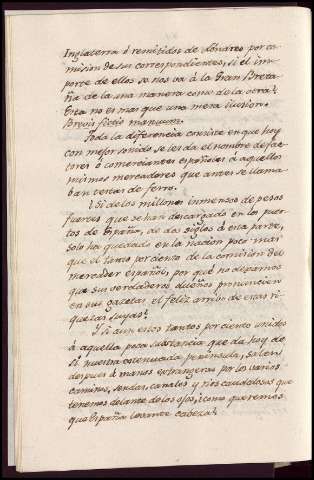 Inglaterra ó remitidos de Londres por co-
mision de sus correspondientes, si el im-
porte de ellos se nos va á la Gran Breta-
ña de la una manera como de la otra?
Esta no es mas que una mera ilusion.
Brevis fictio manuum.
Toda la diferencia consiste en que hoy
con mejor sonido se les da el nombre de fac-
tores ó comerciantes españoles á aquellos
mismos mercadores que antes se llama-
ban testas de ferro.
¿Si de los millones inmensos de pesos
fuertes que se han descargado en los puer-
tos de España, de dos siglos á esta parte,
solo ha quedado en la nacion poco mas
que el tanto por ciento de la comision del
mercader español, por qué no dejamos
que sus verdaderos dueños pronuncien
en sus gazetas el feliz arribo de estas ri-
quezas suyas?
Y si aun estos tantos por ciento unidos
á aquella poca substancia que da hoy de
sí nuestra extenuada peninsula, salen
despues á manos extrangeras por los varios
caminos, sendas, canales y rios caudalosos que
tenemos delante de los ojos, ¿como queremos
que España levante cabeza?